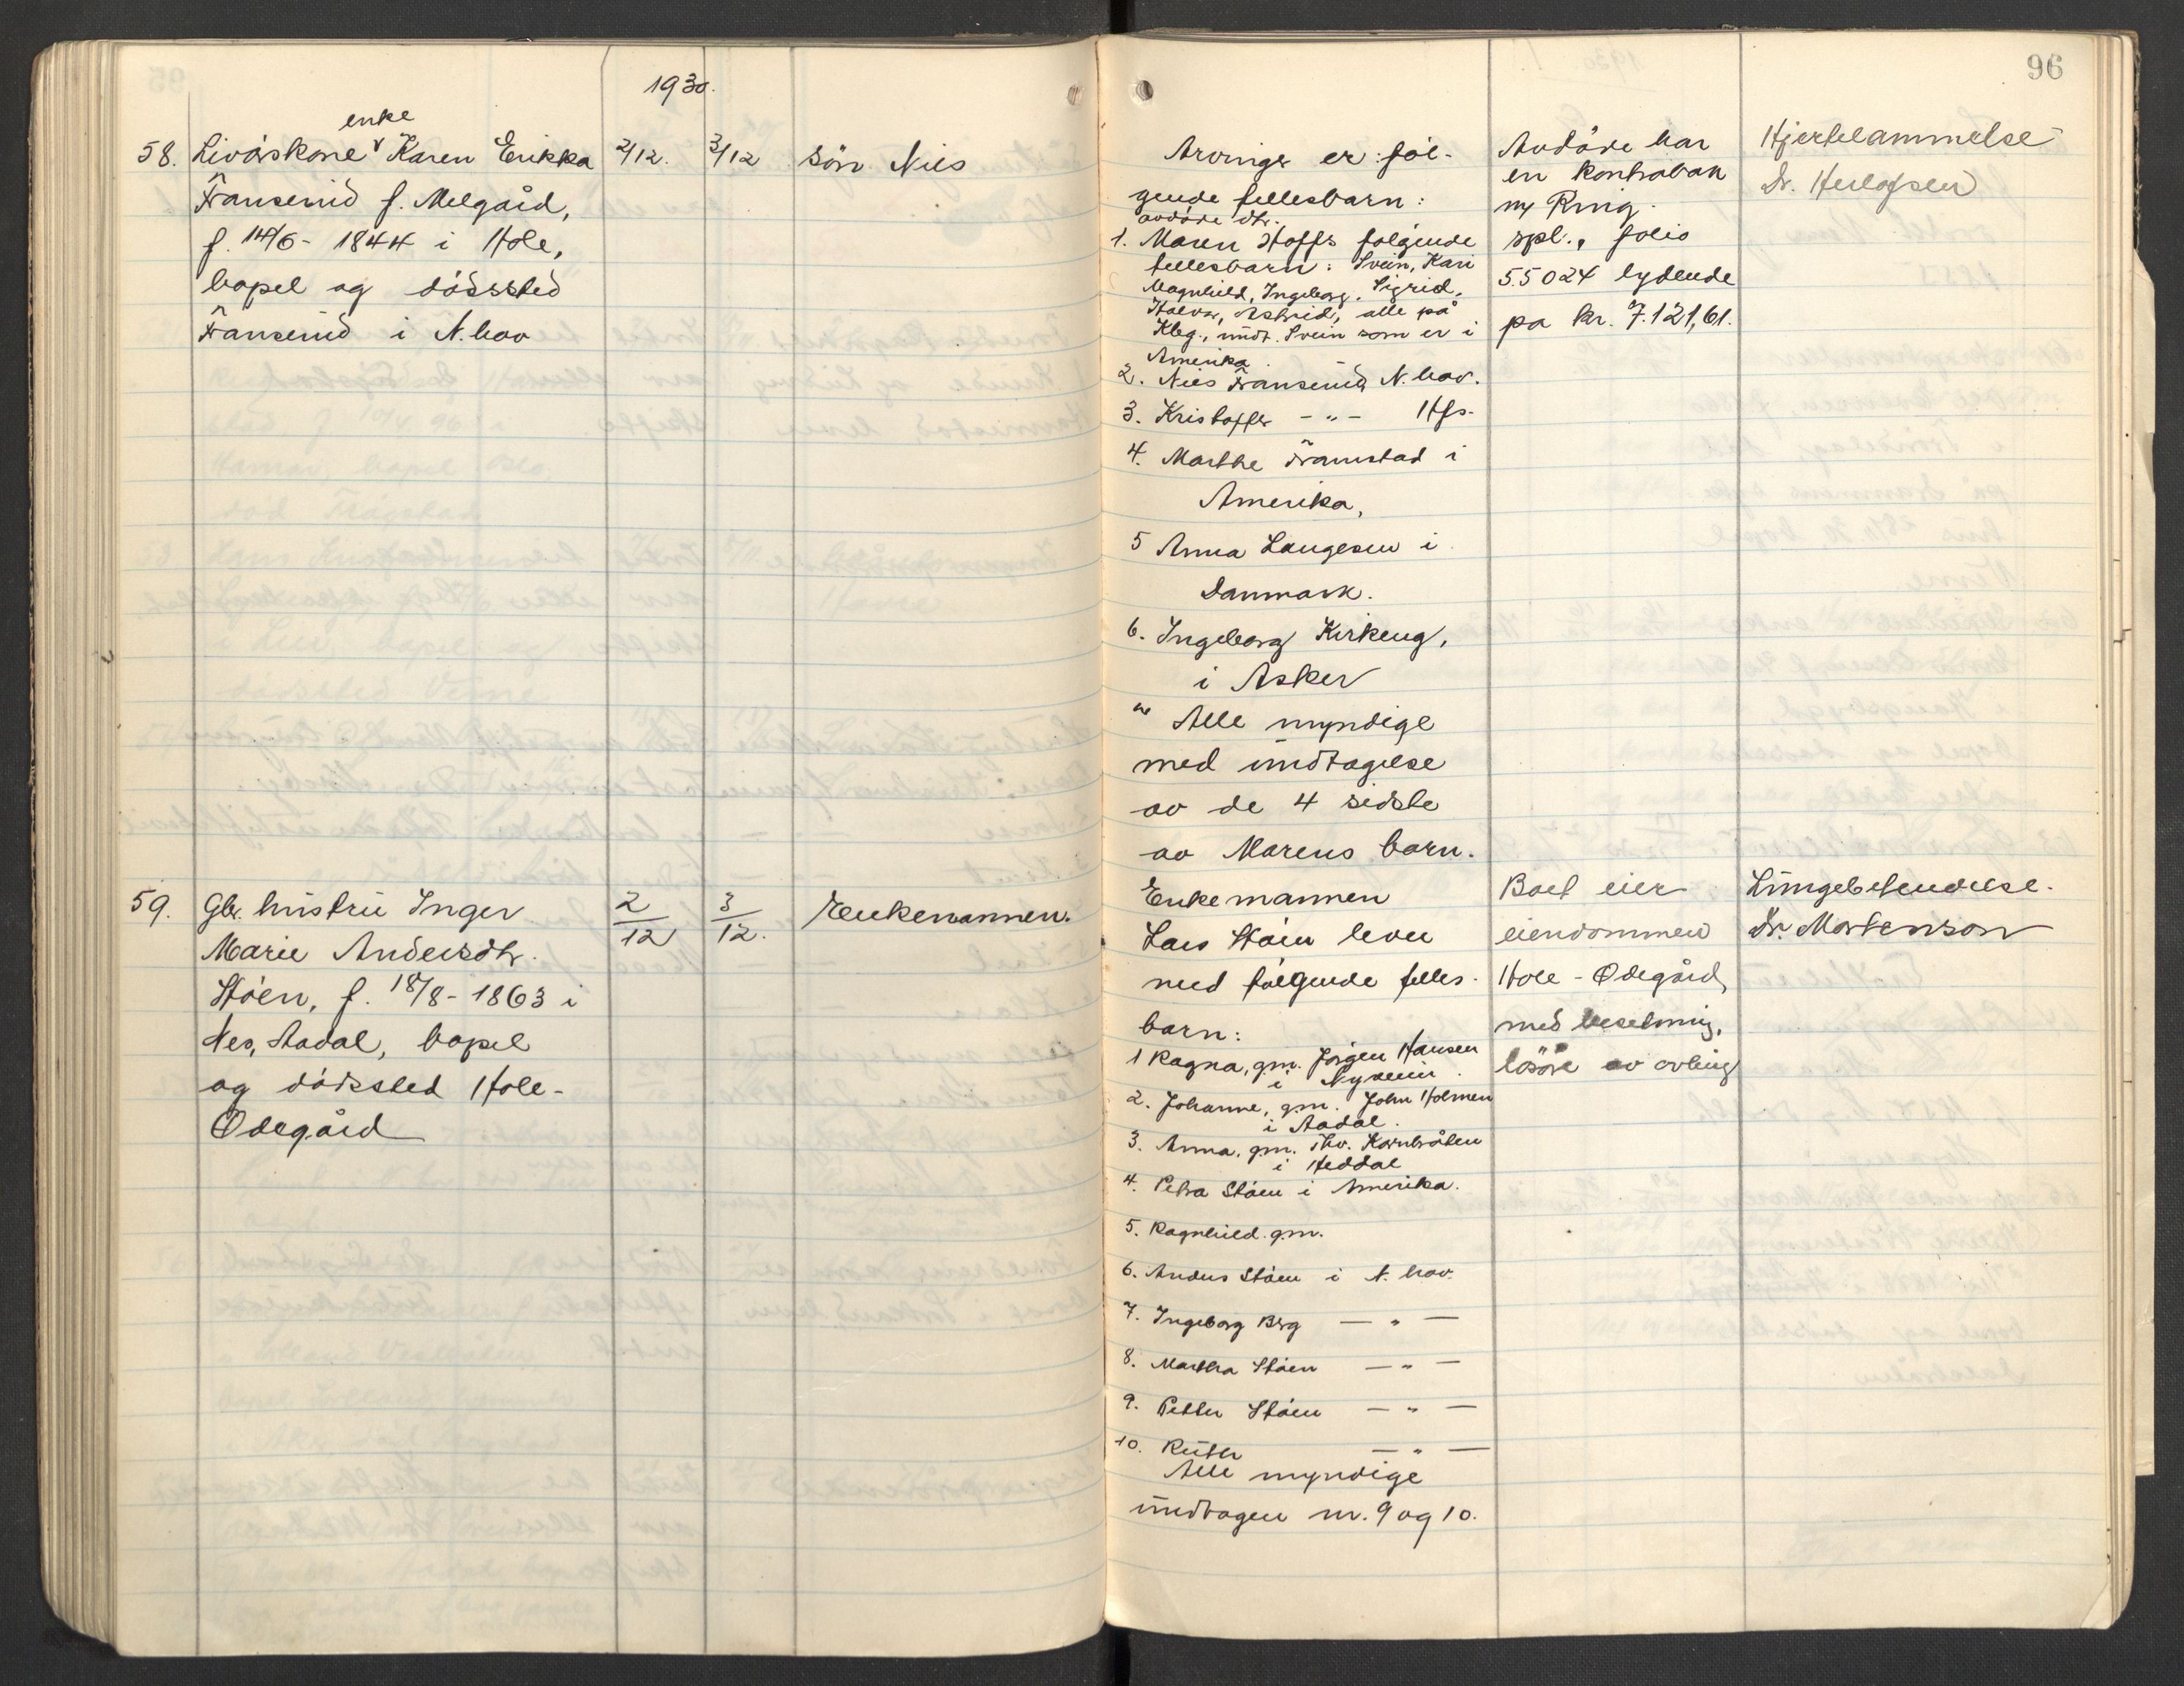 1930.
96
58. Livörskone enke Karen Erikka
Franserud f. Melgård,
f. 14/6 - 1844 i Hole,
bopel og dödssted
Franserud i N.hov
2/12. 3/12 Sön Nils
Arvinger er föl-
gende fellesbarn:
avdöde dtr.
1. Maren Hoffs fölgende
fellesbarn: Svein, Kari
Magnhild, Ingeborg, Sigrid,
Halvor, Astrid, alle på
Kleg., undt. Svein som er i
Amerika.
2. Nils Franserud N.hov.
3. Kristoffer - " - Hfs.
4. Marthe Framstad i
Amerika,
5 Anna Laugesen i
Danmark.
6. Ingeborg Kirkeng,
i Asker
" Alle myndige
med undtagelse
av de 4 sidste
av Marens barn.
Avdöde har
en kontrabok
m/ Ring.
spb., folio
55024 lydende
på kr. 7.121,61.
Hjertelammelse
Dr. Herlofsen
59. Gbr. hustru Inger
Marie Andersdtr.
Stöen, f. 18/8 - 1863 i
Nes, Aadal, bopel
og dödssted Hole-
Ödegård
2/12 3/12. Enkemannen.
Enkemannen
Lars Stöen lever
med fölgende felles-
barn:
1 Ragna, gm. Jörgen Hansen
i
2. Johanne, gm. John Holmen
i Aadal.
3. Anna, gm. Thv. Kornbråten
i Heddal
4. Petra Stöen i Amerika.
5. Ragnhild gm.
6. Anders Stöen i N. hov.
7. Ingeborg Berg — " —
8. Martha Stöen — " —
9. Petter Stöen — " —
10. Ruth — " —
Alle myndige
undtagen nr. 9 og 10.
Boet eier
eiendommen
Hole - Ödegård,
med besetning,
lösöre av avling
Lungebetendelse.
Dr. Mortenson